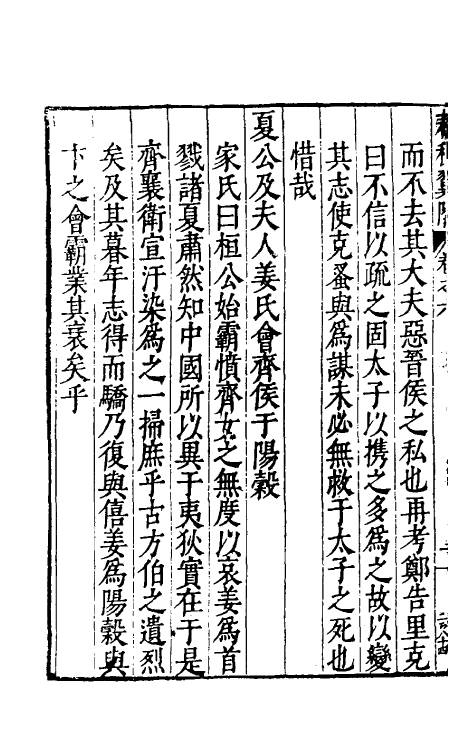 春秋翼附
卷之六
而不去其大夫惡晉侯之私也再考鄭告里克
曰不信以疏之固太子以携之多爲之故以變
其志使克蚤與爲謀未必無救于太子之死也
惜哉
夏公及夫人姜氏會齊侯于陽穀
家氏曰桓公始霸憤齊女之無度以哀姜爲首
戮諸夏肅然知中國所以異于夷狄實在于是
齊襄衛宣汙染爲之一掃庶乎古方伯之遺烈
矣及其暮年志得而驕乃復與僖姜爲陽穀與
卞之會霸業其衰矣乎